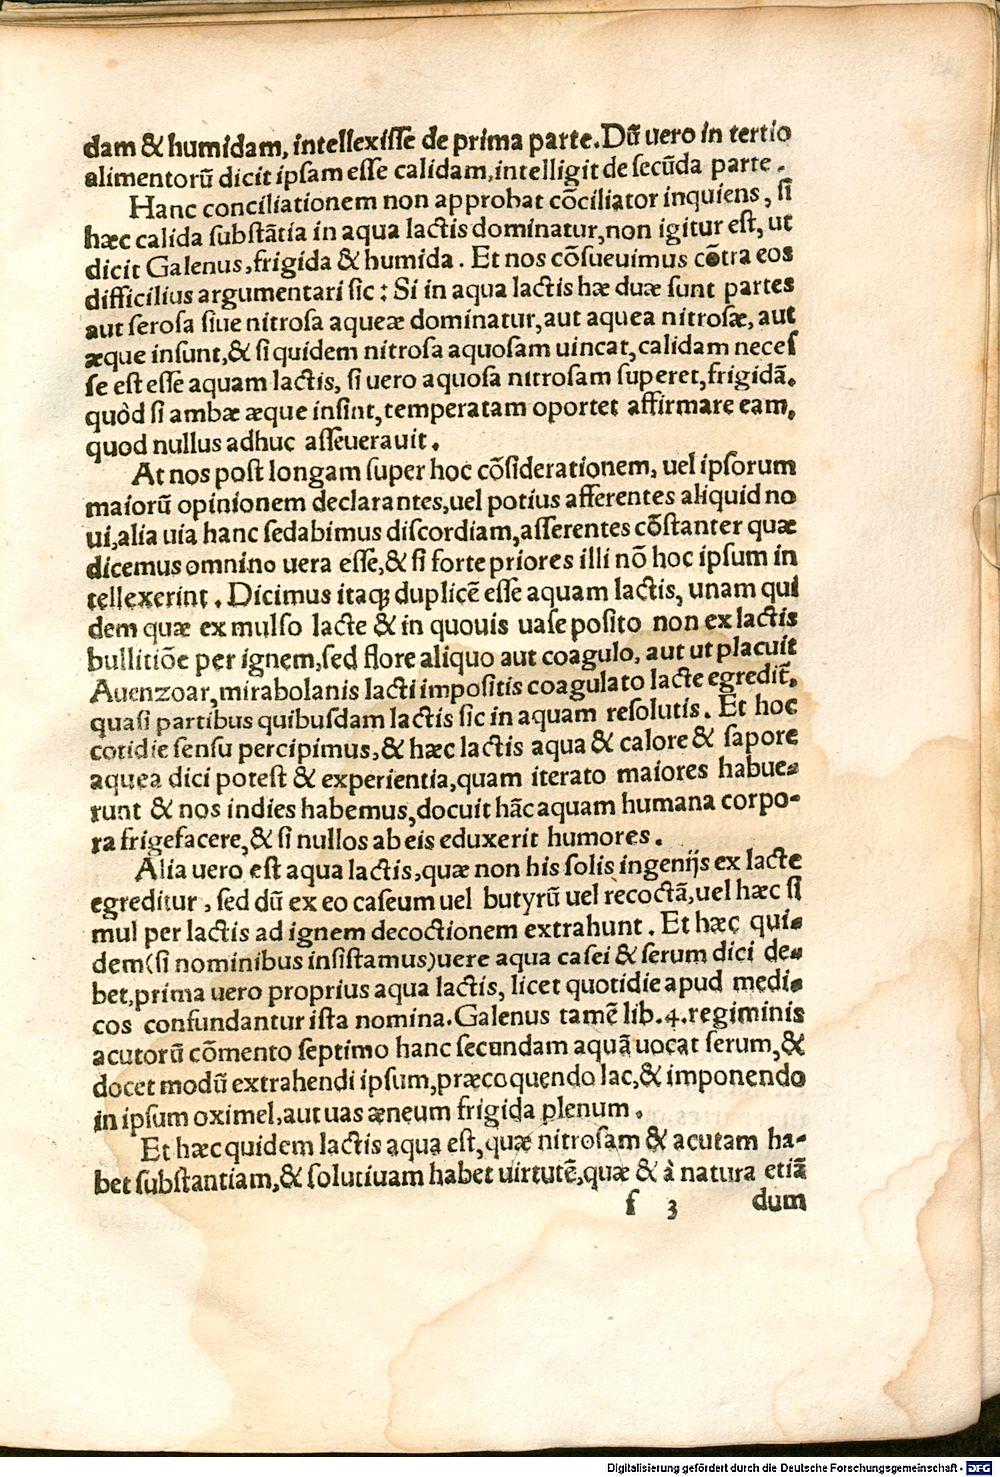 dam & humidam, intellexiſſe de prima parte. Dũ uero in tertio
alimentorũ dicit ipſam eſſe calidam, intelligit de ſecũda parte.
Hanc conciliationem non approbat cõciliator inquiens, ſi
hæc calida ſubſtãtia in aqua lactis dominatur, non igitur eſt, ut
dicit Galenus, frigida & humida. Et nos cõſueuimus cõtra eos
difficilius argumentari ſic: Si in aqua lactis hæ duæ ſunt partes
aut ſeroſa ſiue nitroſa aqueæ dominatur, aut aquea nitroſæ, aut
æque inſunt, & ſi quidem nitroſa aquoſam uincat, calidam neceſ
ſe eſt eſſe aquam lactis, ſi uero aquoſa nitroſam ſuperet, frigidã.
quòd ſi ambæ æque inſint, temperatam oportet affirmare eam,
quod nullus adhuc aſſeuerauit.
At nos poſt longam ſuper hoc cõſiderationem, uel ipſorum
maiorũ opinionem declarantes, uel potius afferentes aliquid no
ui, alia uia hanc ſedabimus diſcordiam, aſſerentes cõſtanter quæ
dicemus omnino uera eſſe, & ſi forte priores illi nõ hoc ipſum in
tellexerint. Dicimus itaq; duplicẽ eſſe aquam lactis, unam qui
dem quæ ex mulſo lacte & in quouis uaſe poſito non ex lactis
bullitiõe per ignem, ſed flore aliquo aut coagulo, aut ut placuit
Auenzoar, mirabolanis lacti impoſitis coagulato lacte egredit̃.
quaſi partibus quibuſdam lactis ſic in aquam reſolutis. Et hoc
cotidie ſenſu percipimus, & hæc lactis aqua & calore & ſapore
aquea dici poteſt & experientia, quam iterato maiores habue-
runt & nos indies habemus, docuit hãc aquam humana corpo-
ra frigefacere, & ſi nullos ab eis eduxerit humores.
Alia uero eſt aqua lactis, quæ non his ſolis ingenijs ex lacte
egreditur, ſed dũ ex eo caſeum uel butyrũ uel recoctã, uel hæc ſi
mul per lactis ad ignem decoctionem extrahunt. Et hæc qui-
dem (ſi nominibus inſiſtamus) uere aqua caſei & ſerum dici de-
bet, prima uero proprius aqua lactis, licet quotidie apud medi-
cos confundantur iſta nomina. Galenus tamẽ lib. 4. regiminis
acutorũ cõmento ſeptimo hanc ſecundam aquã uocat ſerum, &
docet modũ extrahendi ipſum, præcoquendo lac, & imponendo
in ipſum oximel, aut uas æneum frigida plenum.
Et hæc quidem lactis aqua eſt, quæ nitroſam & acutam ha-
bet ſubſtantiam, & ſolutiuam habet uirtutẽ, quæ & à natura etiã
ſ 3 dum
Digitalisierung gefördert durch die Deutsche Forschungsgemeinschaft - DFG